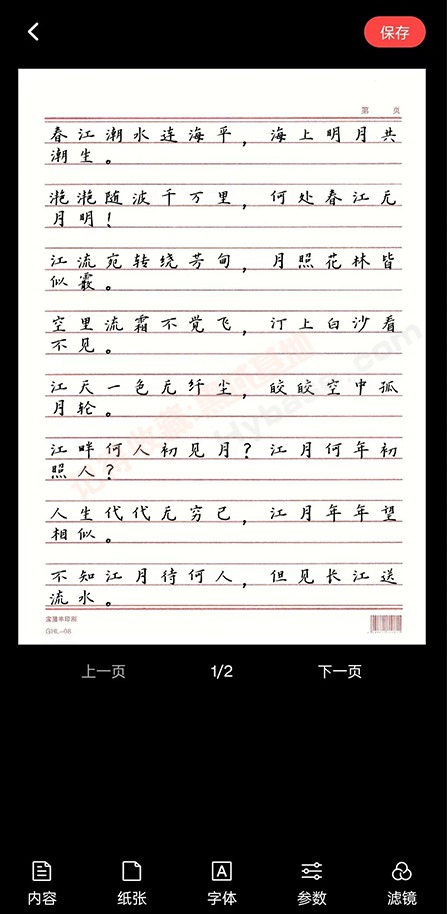 保存
第 页
春江潮水连海平，海上明月共
潮生。
滟滟随波千万里，何处春江无
月明！
江流宛转绕芳甸，月照花林皆
似霰。
空里流霜不觉飞，汀上白沙看
不见。
江天一色无纤尘，皎皎空中孤
月轮。
江畔何人初见月？江月何年初
照人？
人生代代无穷已，江月年年望
相似。
不知江月待何人，但见长江送
流水。
印刷
GHL-08
上一页 1/2 下一页
内容 纸张 字体 参数 滤镜